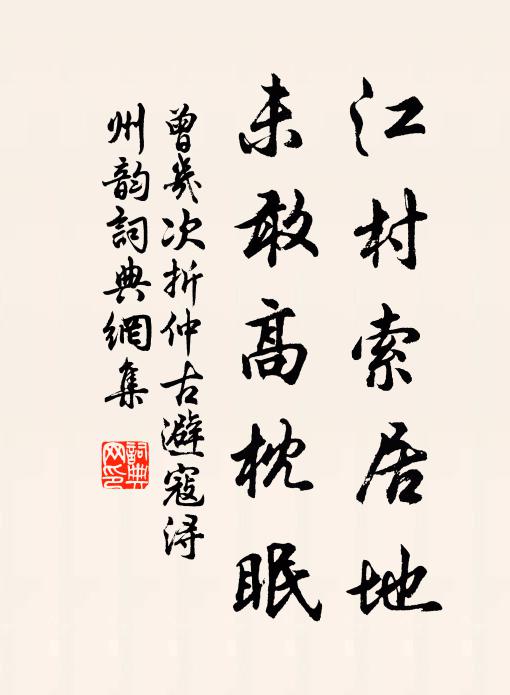 江村索居地
未敢高枕眠
曾幾次折仲古避寇浔
州韵詞典網集
詞典
网印